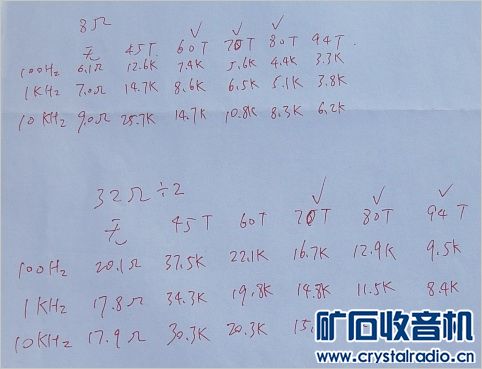 8Ω
无 45T 60T 70T 80T 94T
100Hz 6.1Ω 12.6K 7.4K 5.6K 4.4K 3.3K
1KHz 7.0Ω 14.7K 8.6K 6.5K 5.1K 3.8K
10KHz 9.0Ω 25.7K 14.7K 10.8K 8.3K 6.2K
32Ω÷2
无 45T 60T 70T 80T 94T
100Hz 20.1Ω 37.5K 22.1K 16.7K 12.9K 9.5K
1KHz 17.8Ω 34.3K 19.8K 14.8K 11.5K 8.4K
10KHz 17.9Ω 30.3K 20.3K
矿石收音机
www.crystalradio.cn